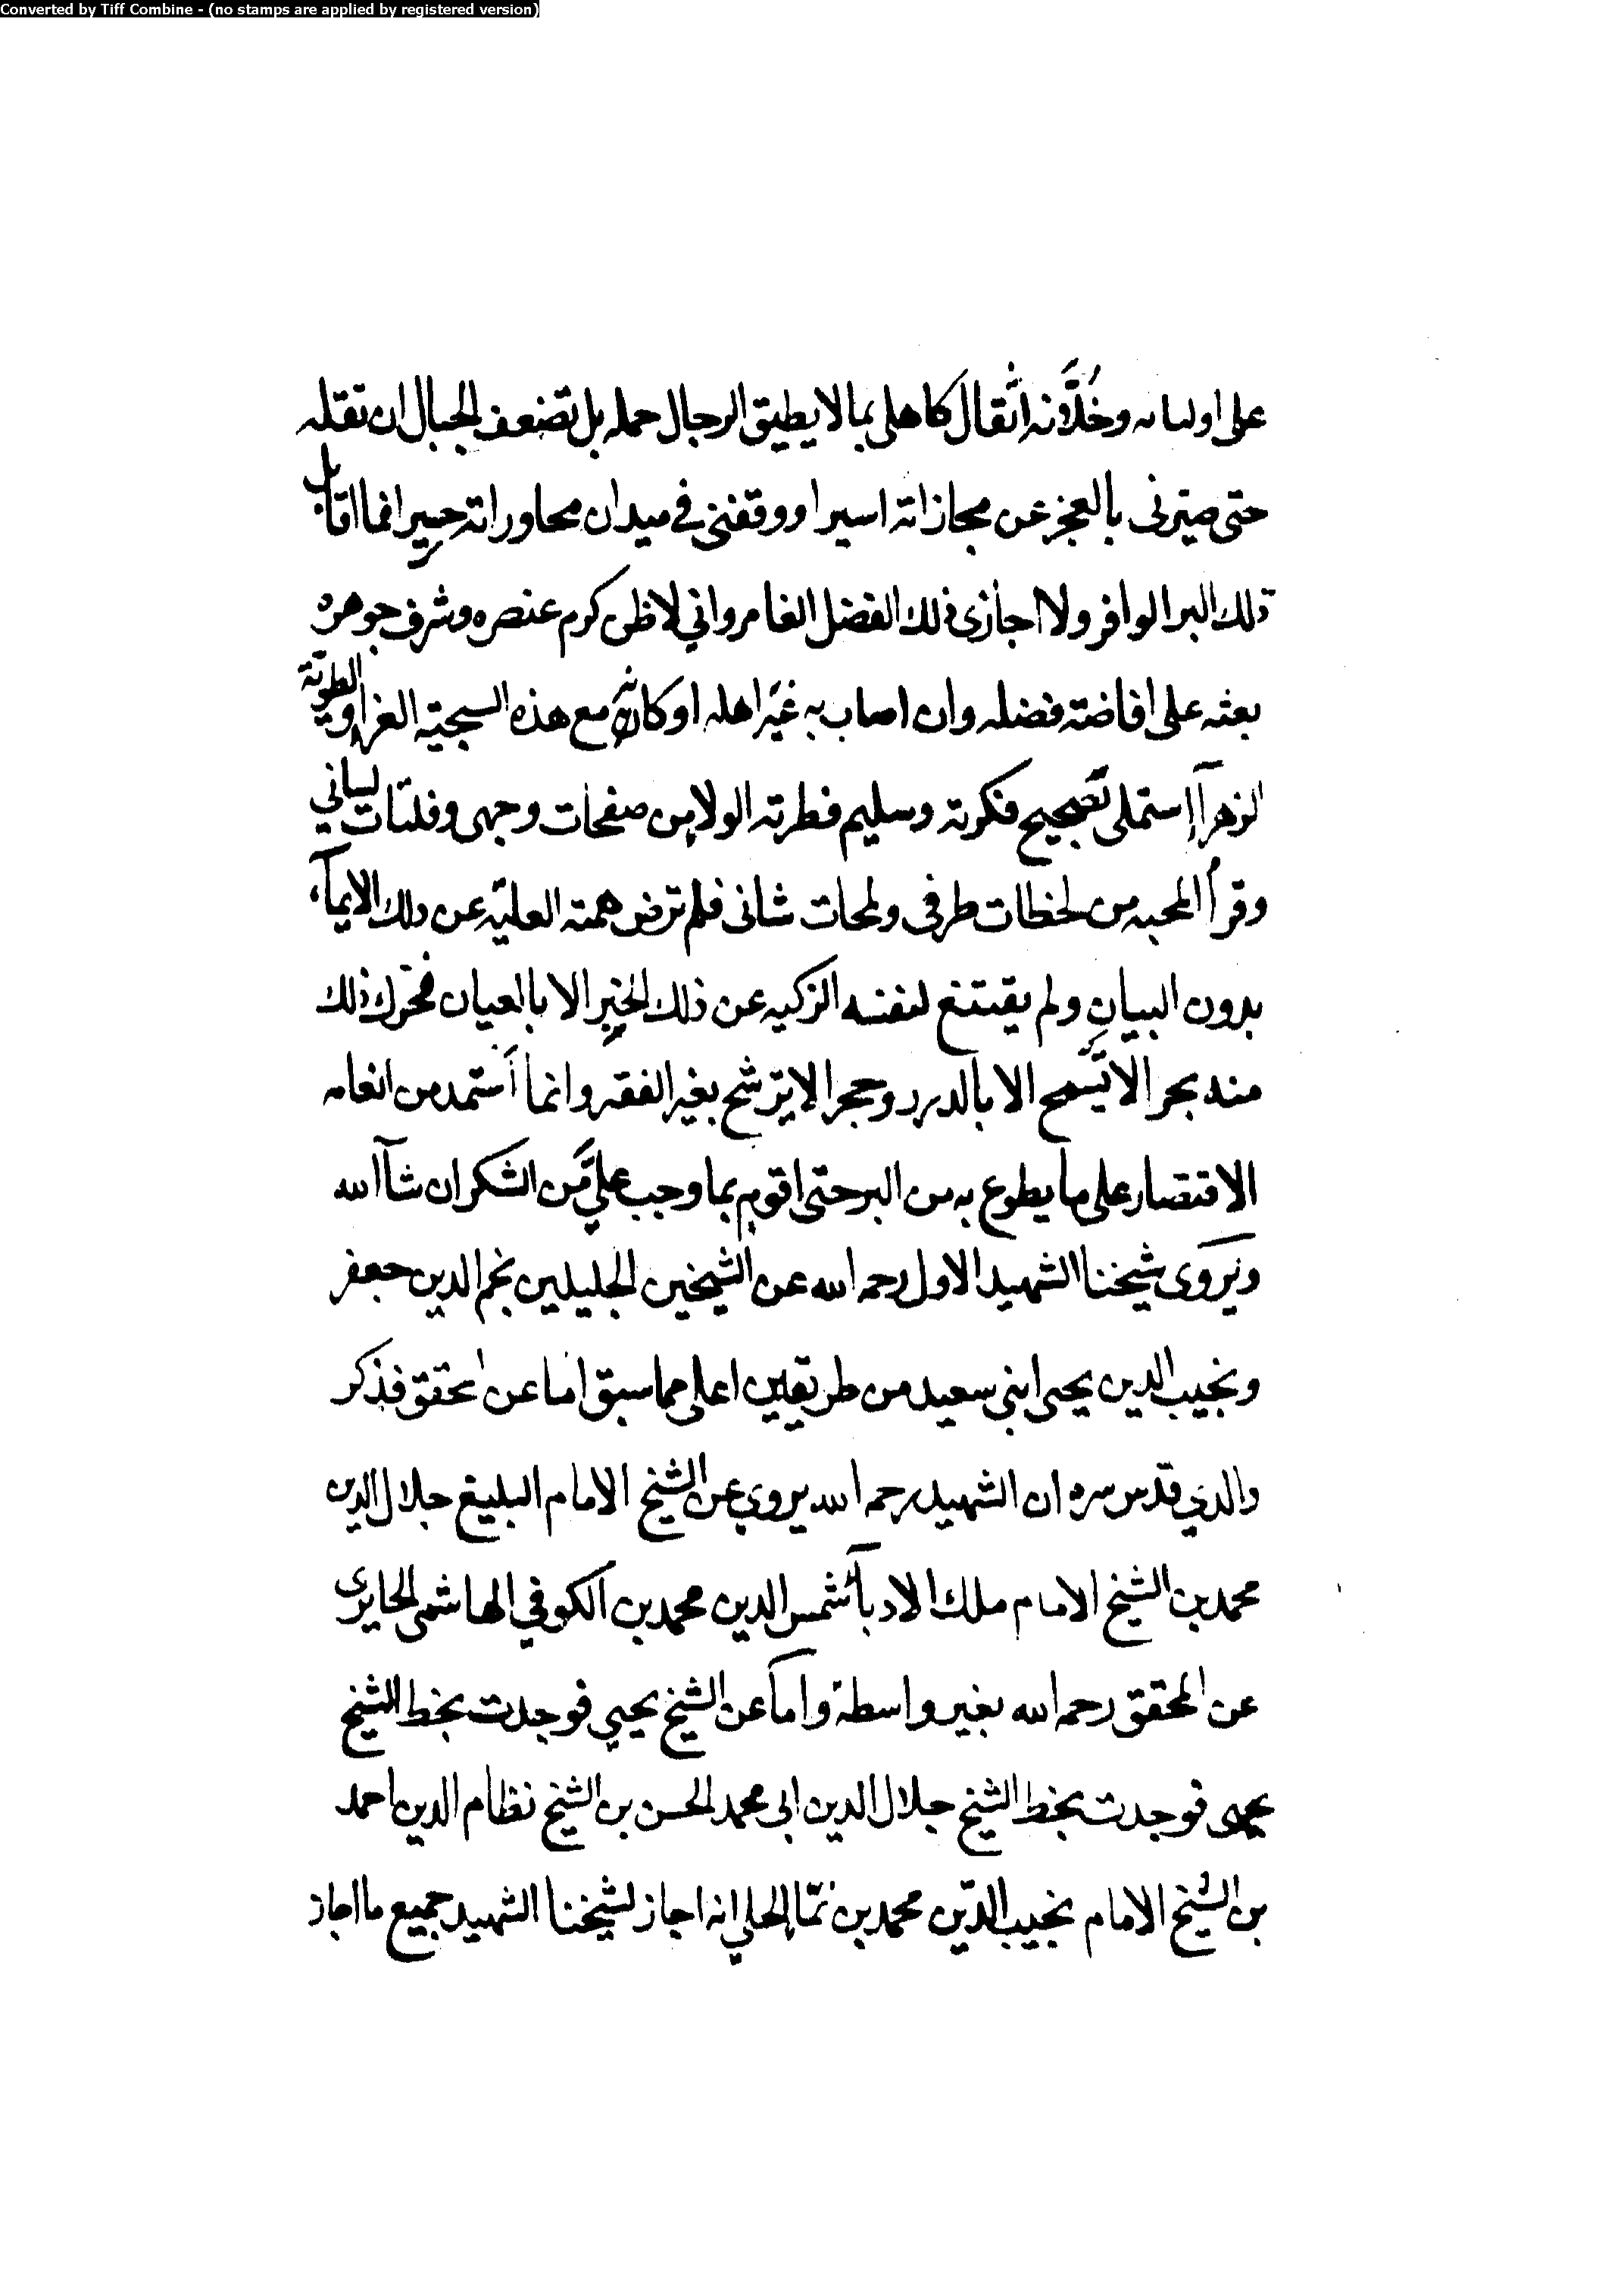 Converted by Tiff Combine - (no stamps are applied by registered version)
على اوليائه وخلانه اثقال كاهلى بما لا يطيق الرجال حمله بل تضعف الجبال ان تقله
حتى صيرنى بالعجز عن مجازاته اسيرا ووقفنى في ميدان محاوراته حسيرا فما اقابل
ذلك البر الوافر ولا اجازى ذلك الفضل الغامر واني لاظن كرم عنصره وشرف جوهره
بعثه على افاضة فضله وان اصاب به غير اهله او كانه مع هذه السجية الغراو الطوية
الزهرآ إستملى بصحيح فكرته وسليم فطرته الولا من صفحات وجهى وفلتات لساني
وقرأ المحبه من لحظات طرفى ولمحات شانى فلم ترض همته العليّه عن ذلك الايمآء
بدون البيان ولم يقتنع لنفسه الزكيه عن ذلك الخبر الا بالعيان فحرّك ذلك
منه بحرالا يسمح الا بالدرر وحجرالا يترشح بغير الفقر وانما أستمد من انعامه
الاقتصار على ما يطوع به من البر حتى اقوم بما وجب عليّ من الشكران شآالله
ونروى شيخنا الشهيد الاول رحمه الله عن الشيخين الجليلين نجم الدين جعفر
ونجيب الدين يحيى ابنى سعيد من طريقين اعلى مما سبق اما عن المحقق فذكر
والدي قدس سره ان الشهيد رحمه الله يروي عن الشيخ الامام البليغ جلال الدين
محمد بن الشيخ الامام ملك الادبآ شمس الدين محمد بن الكوفي الهاشمى الحايرى
عن المحقق رحمه الله بغير واسطة واما عن الشيخ يحيى فوجدت بخط الشيخ
يحيى فوجدت بخط الشيخ جلال الدين ابى محمد الحسن بن الشيخ نظام الدين احمد
بن الشيخ الامام نجيب الدّين محمد بن نمّا الحلي انه اجاز لشيخنا الشهيد جميع ما اجاز